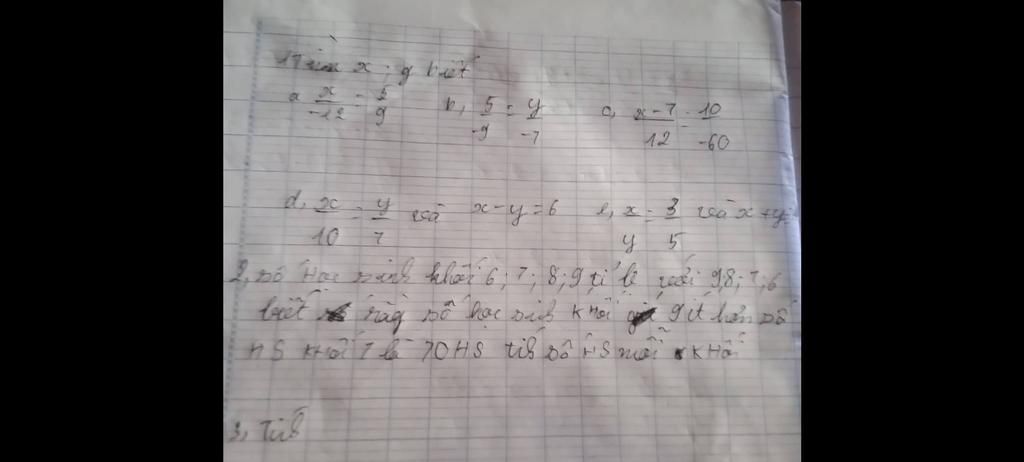 1, Tìm x ; y biết
a, x/-12 = 5/9 b, 5/-9 = y/-7 c, x-7/12 = 10/-60
d, x/10 = y/7 và x-y=6 e, x/y = 3/5 và x+y=
2, Số học sinh khối 6; 7; 8; 9 tỉ lệ với 9,8; 7; 6
biết rằng số học sinh khối 9 ít hơn số
HS khối 7 là 70 HS tính số HS mỗi khối
3, Tính